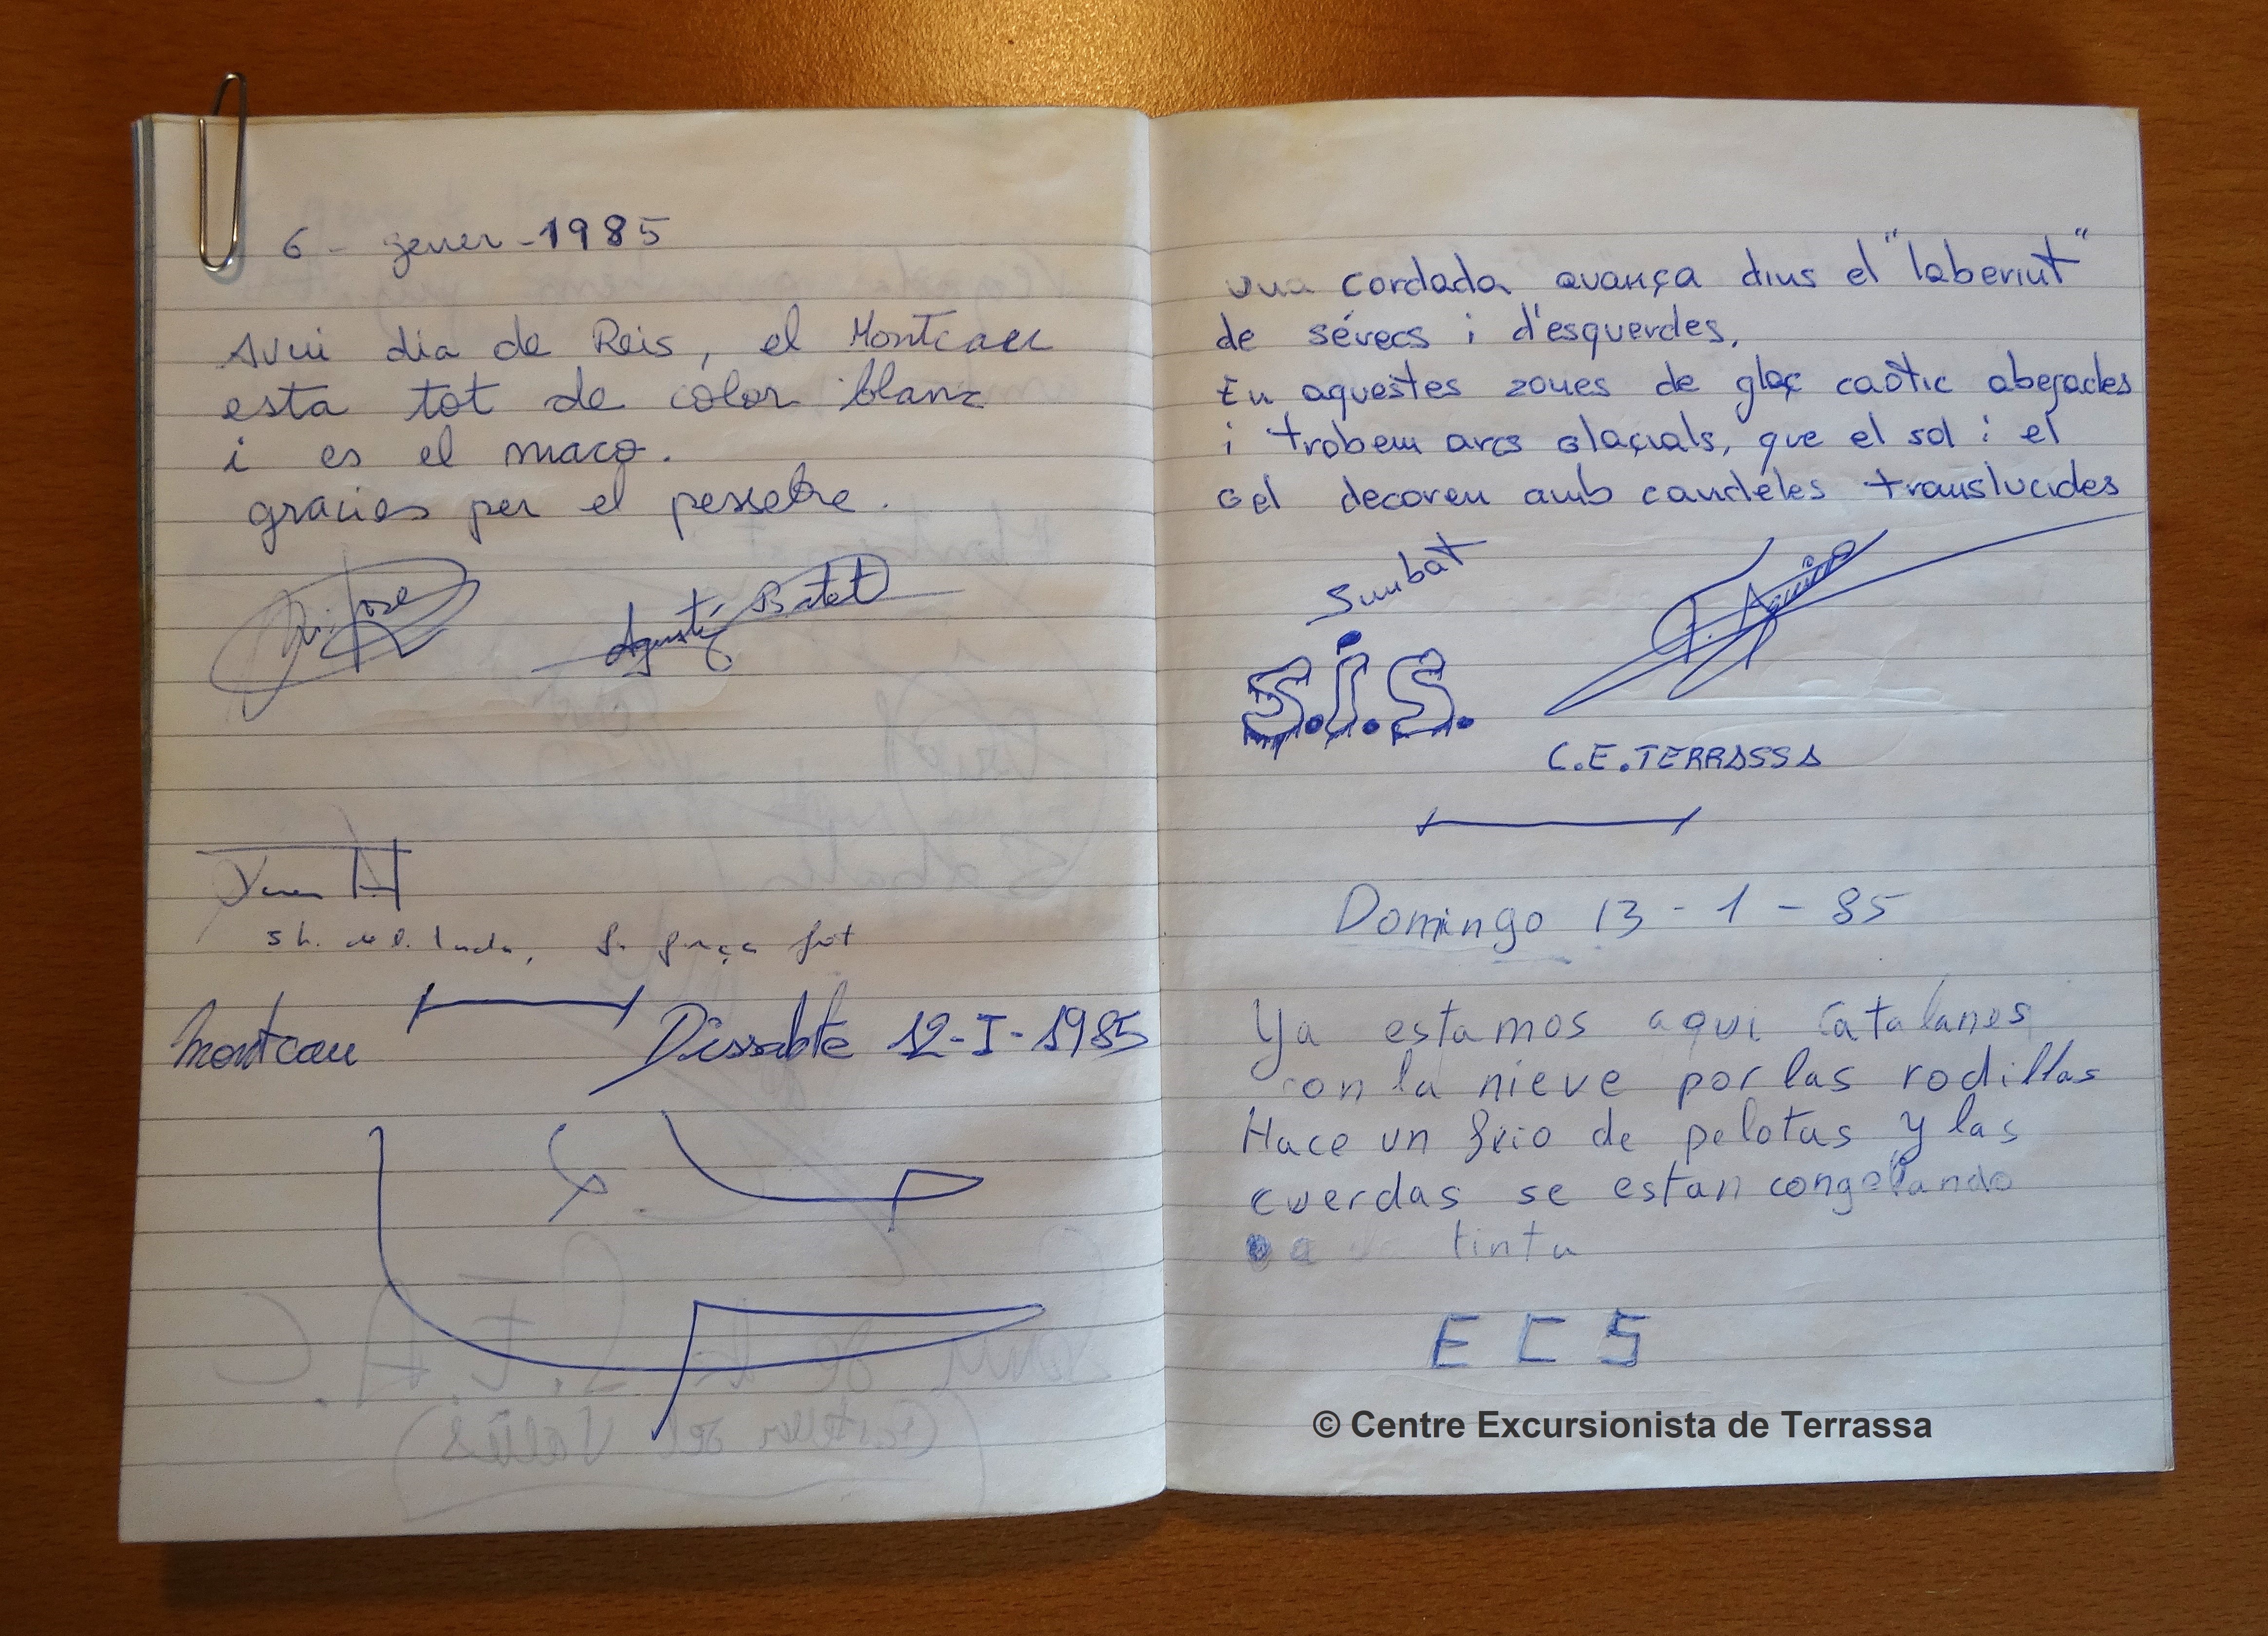 6 - gener - 1985
Avui dia de Reis, el Montcau
esta tot de color blanc
i es el maco.
gracies per el pessebre.
Agustí Batet
fot
Montcau Dissabte 12-I-1985
una cordada avança dins el "laberint"
de sérecs i d'esquerdes.
En aquestes zones de glaç caòtic abegades
i trobem arcs glaçials, que el sol i el
gel decoren amb candeles translucides
Sumbat
S.i.S.
C.E.TERRASSA
Domingo 13 - 1 - 85
Ya estamos aqui catalanes
con la nieve por las rodillas
Hace un frio de pelotas y las
cuerdas se estan congelando
tinta
E C S
© Centre Excursionista de Terrassa